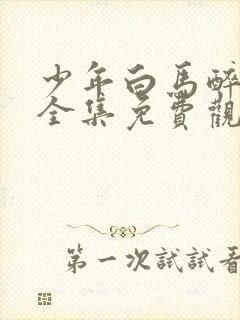 少年白馬醉
全集免費觀
第一次試試看